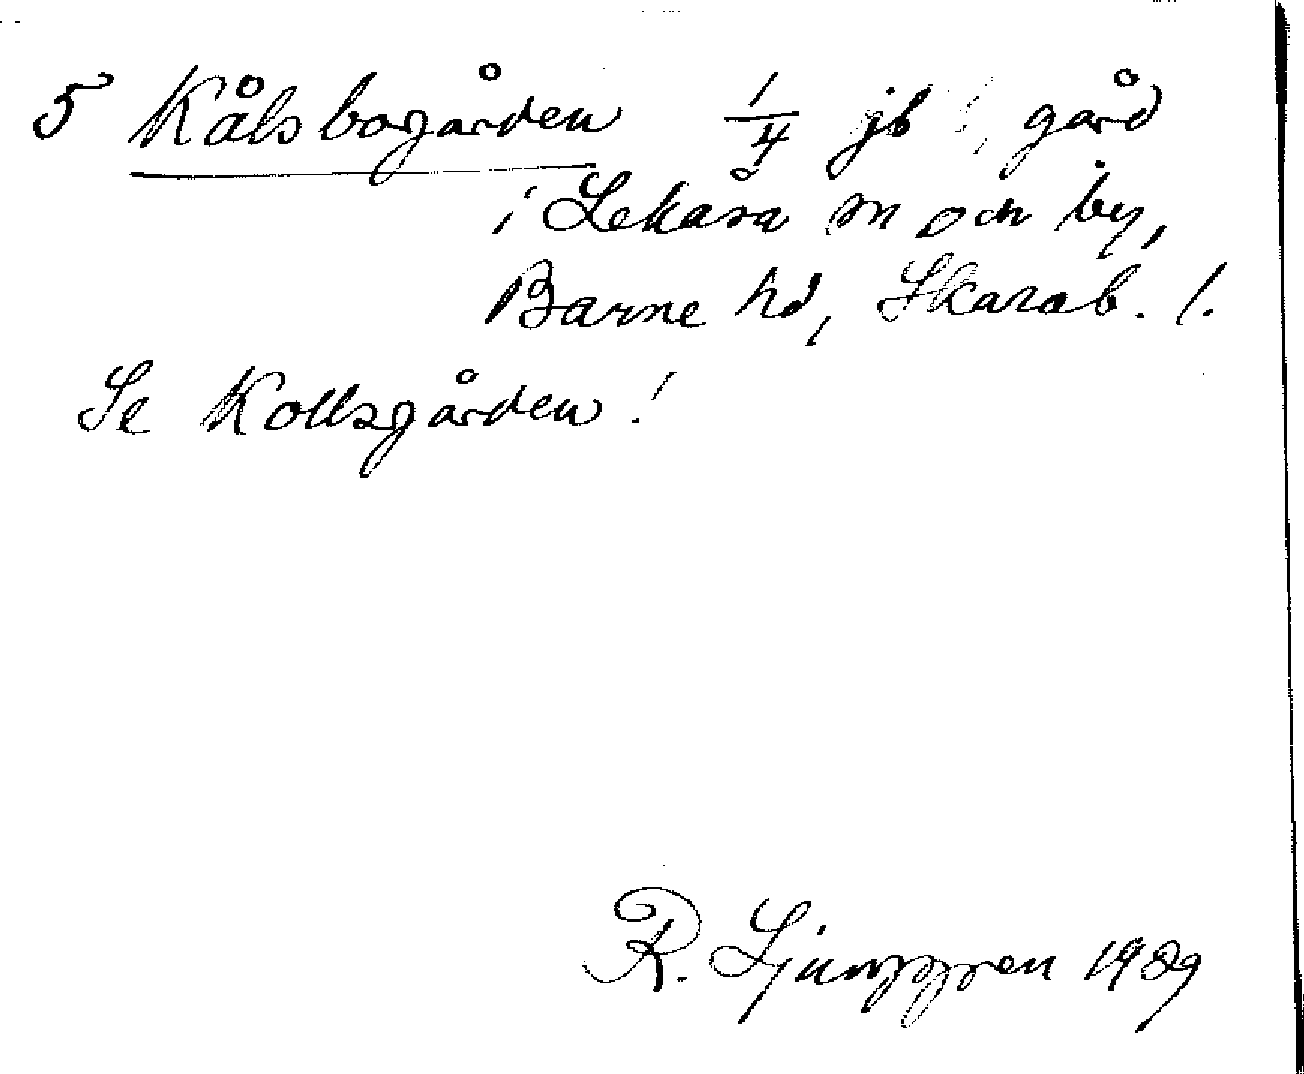 5 Kålsbogården 1/4 jb, gård
i Lekåsa sn och by,
Barne hd, Skarab. l.
Se Kollsgården!
R. Ljunggren 1929